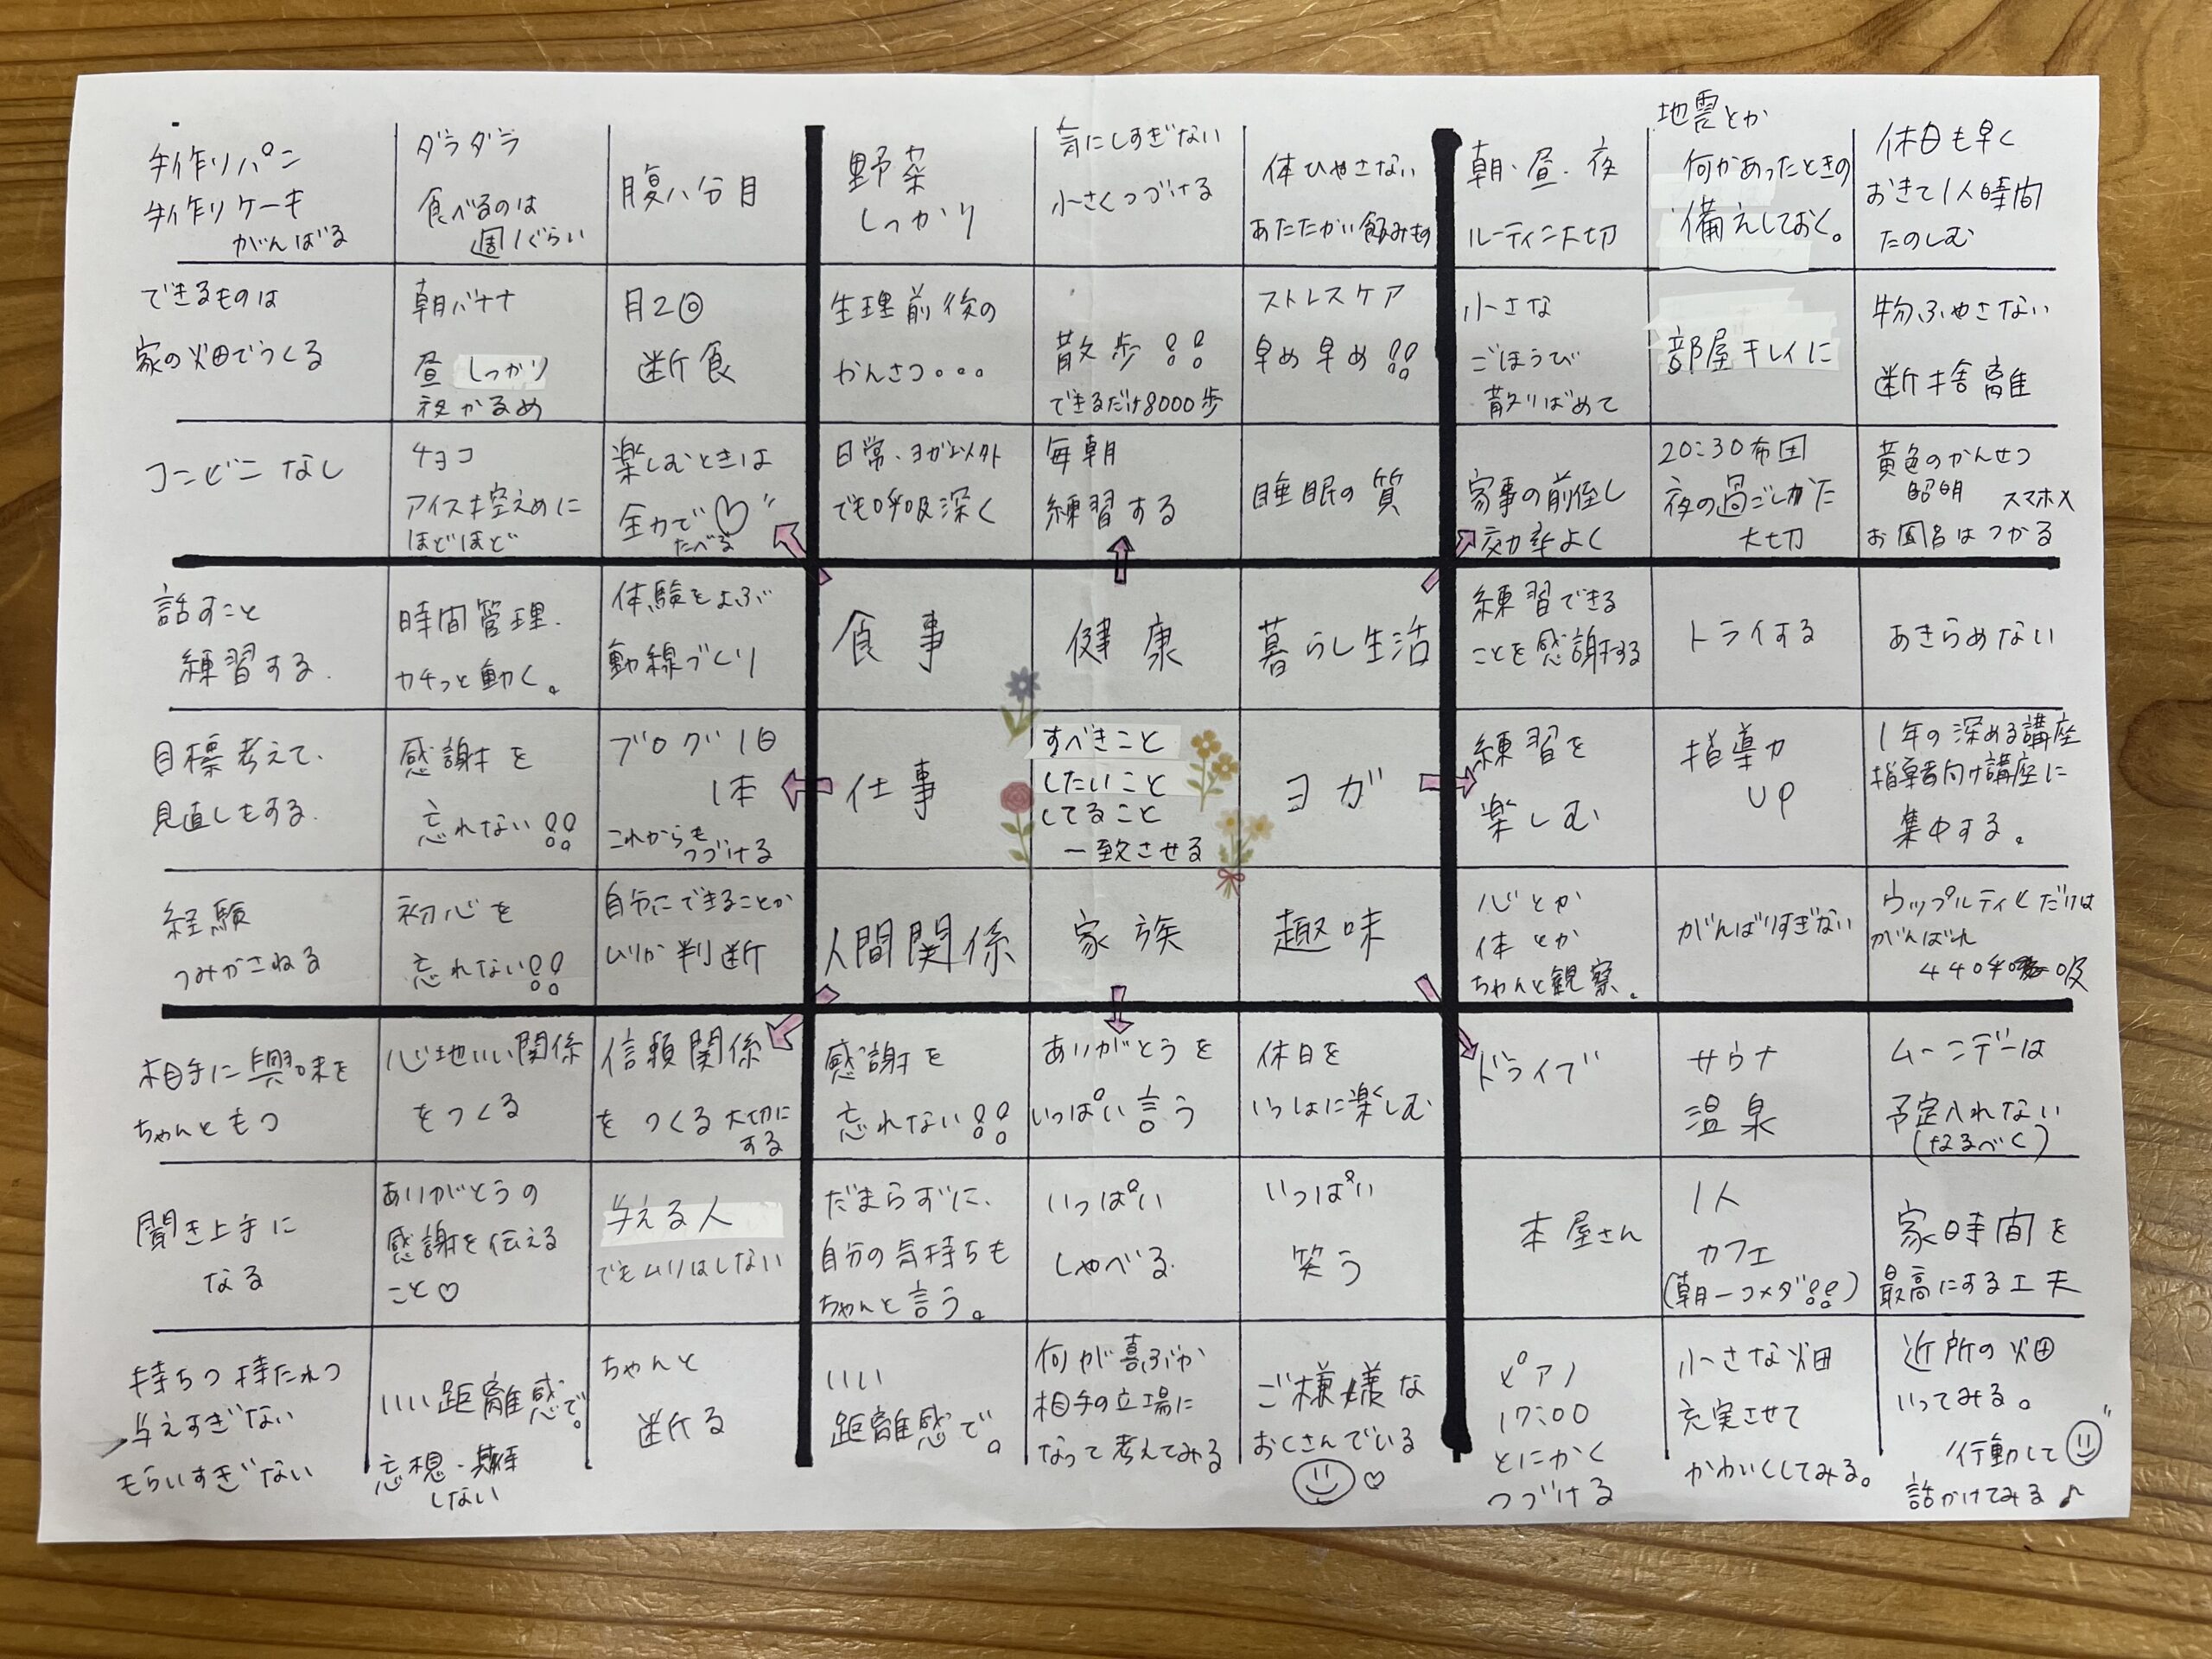 手作りパン
手作りケーキ
がんばる
ダラダラ
食べるのは
週1ぐらい
腹八分目
野菜
しっかり
気にしすぎない
小さくつづける
体ひやさない
あたたかい飲みもの
朝・昼・夜
ルーティン大切
地震とか
何かあったときの
備えしておく。
休日も早く
おきて1人時間
たのしむ
できるものは
家の畑でつくる
朝バナナ
昼しっかり
夜かるめ
月2回
断食
生理前後の
かんさつ...
散歩!!
できるだけ8000歩
ストレスケア
早め早め!!
小さな
ごほうび
散りばめて
部屋キレイに
物ふやさない
断捨離
コンビニなし
チョコ
アイス控えめに
ほどほど
楽しむときは
全力で♡
たべる
日常、ヨガ以外
でも呼吸深く
毎朝
練習する
睡眠の質
家事の前倒し
効率よく
20:30布団
夜の過ごしかた
大切
黄色のかんせつ
照明 スマホ×
お風呂はつかる
話すこと
練習する.
時間管理.
カチっと動く。
体験をよぶ
動線づくり
食事
健康
暮らし生活
練習できる
ことを感謝する
トライする
あきらめない
目標考えて、
見直しもする.
感謝を
忘れない!!
ブログ1日
1本
これからも
つづける
仕事
すべきこと
したいこと
してること
一致させる
ヨガ
練習を
楽しむ
指導力
UP
1年の深める講座
指導者向け講座に
集中する。
経験
つみかさねる
初心を
忘れない!!
自分にできることか
ムリか判断
人間関係
家族
趣味
心とか
体とか
ちゃんと観察。
がんばりすぎない
ウップルティヒだけは
がんばれ
吸
相手に興味を
ちゃんともつ
心地いい関係
をつくる
信頼関係
をつくる 大切に
する
感謝を
忘れない!!
ありがとうを
いっぱい言う
休日を
いっしょに楽しむ
ドライブ
サウナ
温泉
ムーンデーは
予定入れない
(なるべく)
聞き上手に
なる
ありがとうの
感謝を伝える
こと♡
与える人
でもムリはしない
だまらずに、
自分の気持ちも
ちゃんと言う。
いっぱい
しゃべる
いっぱい
笑う
本屋さん
1人
カフェ
(朝一コメダ!!)
家時間を
最高にする工夫
持ちつ持たれつ
与えすぎない
もらいすぎない
いい距離感で。
妄想・期待
しない
ちゃんと
断る
いい
距離感で。
何が喜ぶか
相手の立場に
なって考えてみる
ご機嫌な
おくさんでいる
♡
ピアノ
17:00
とにかく
つづける
小さな畑
充実させて
かわいくしてみる。
近所の畑
いってみる。
行動して
話かけてみる♪